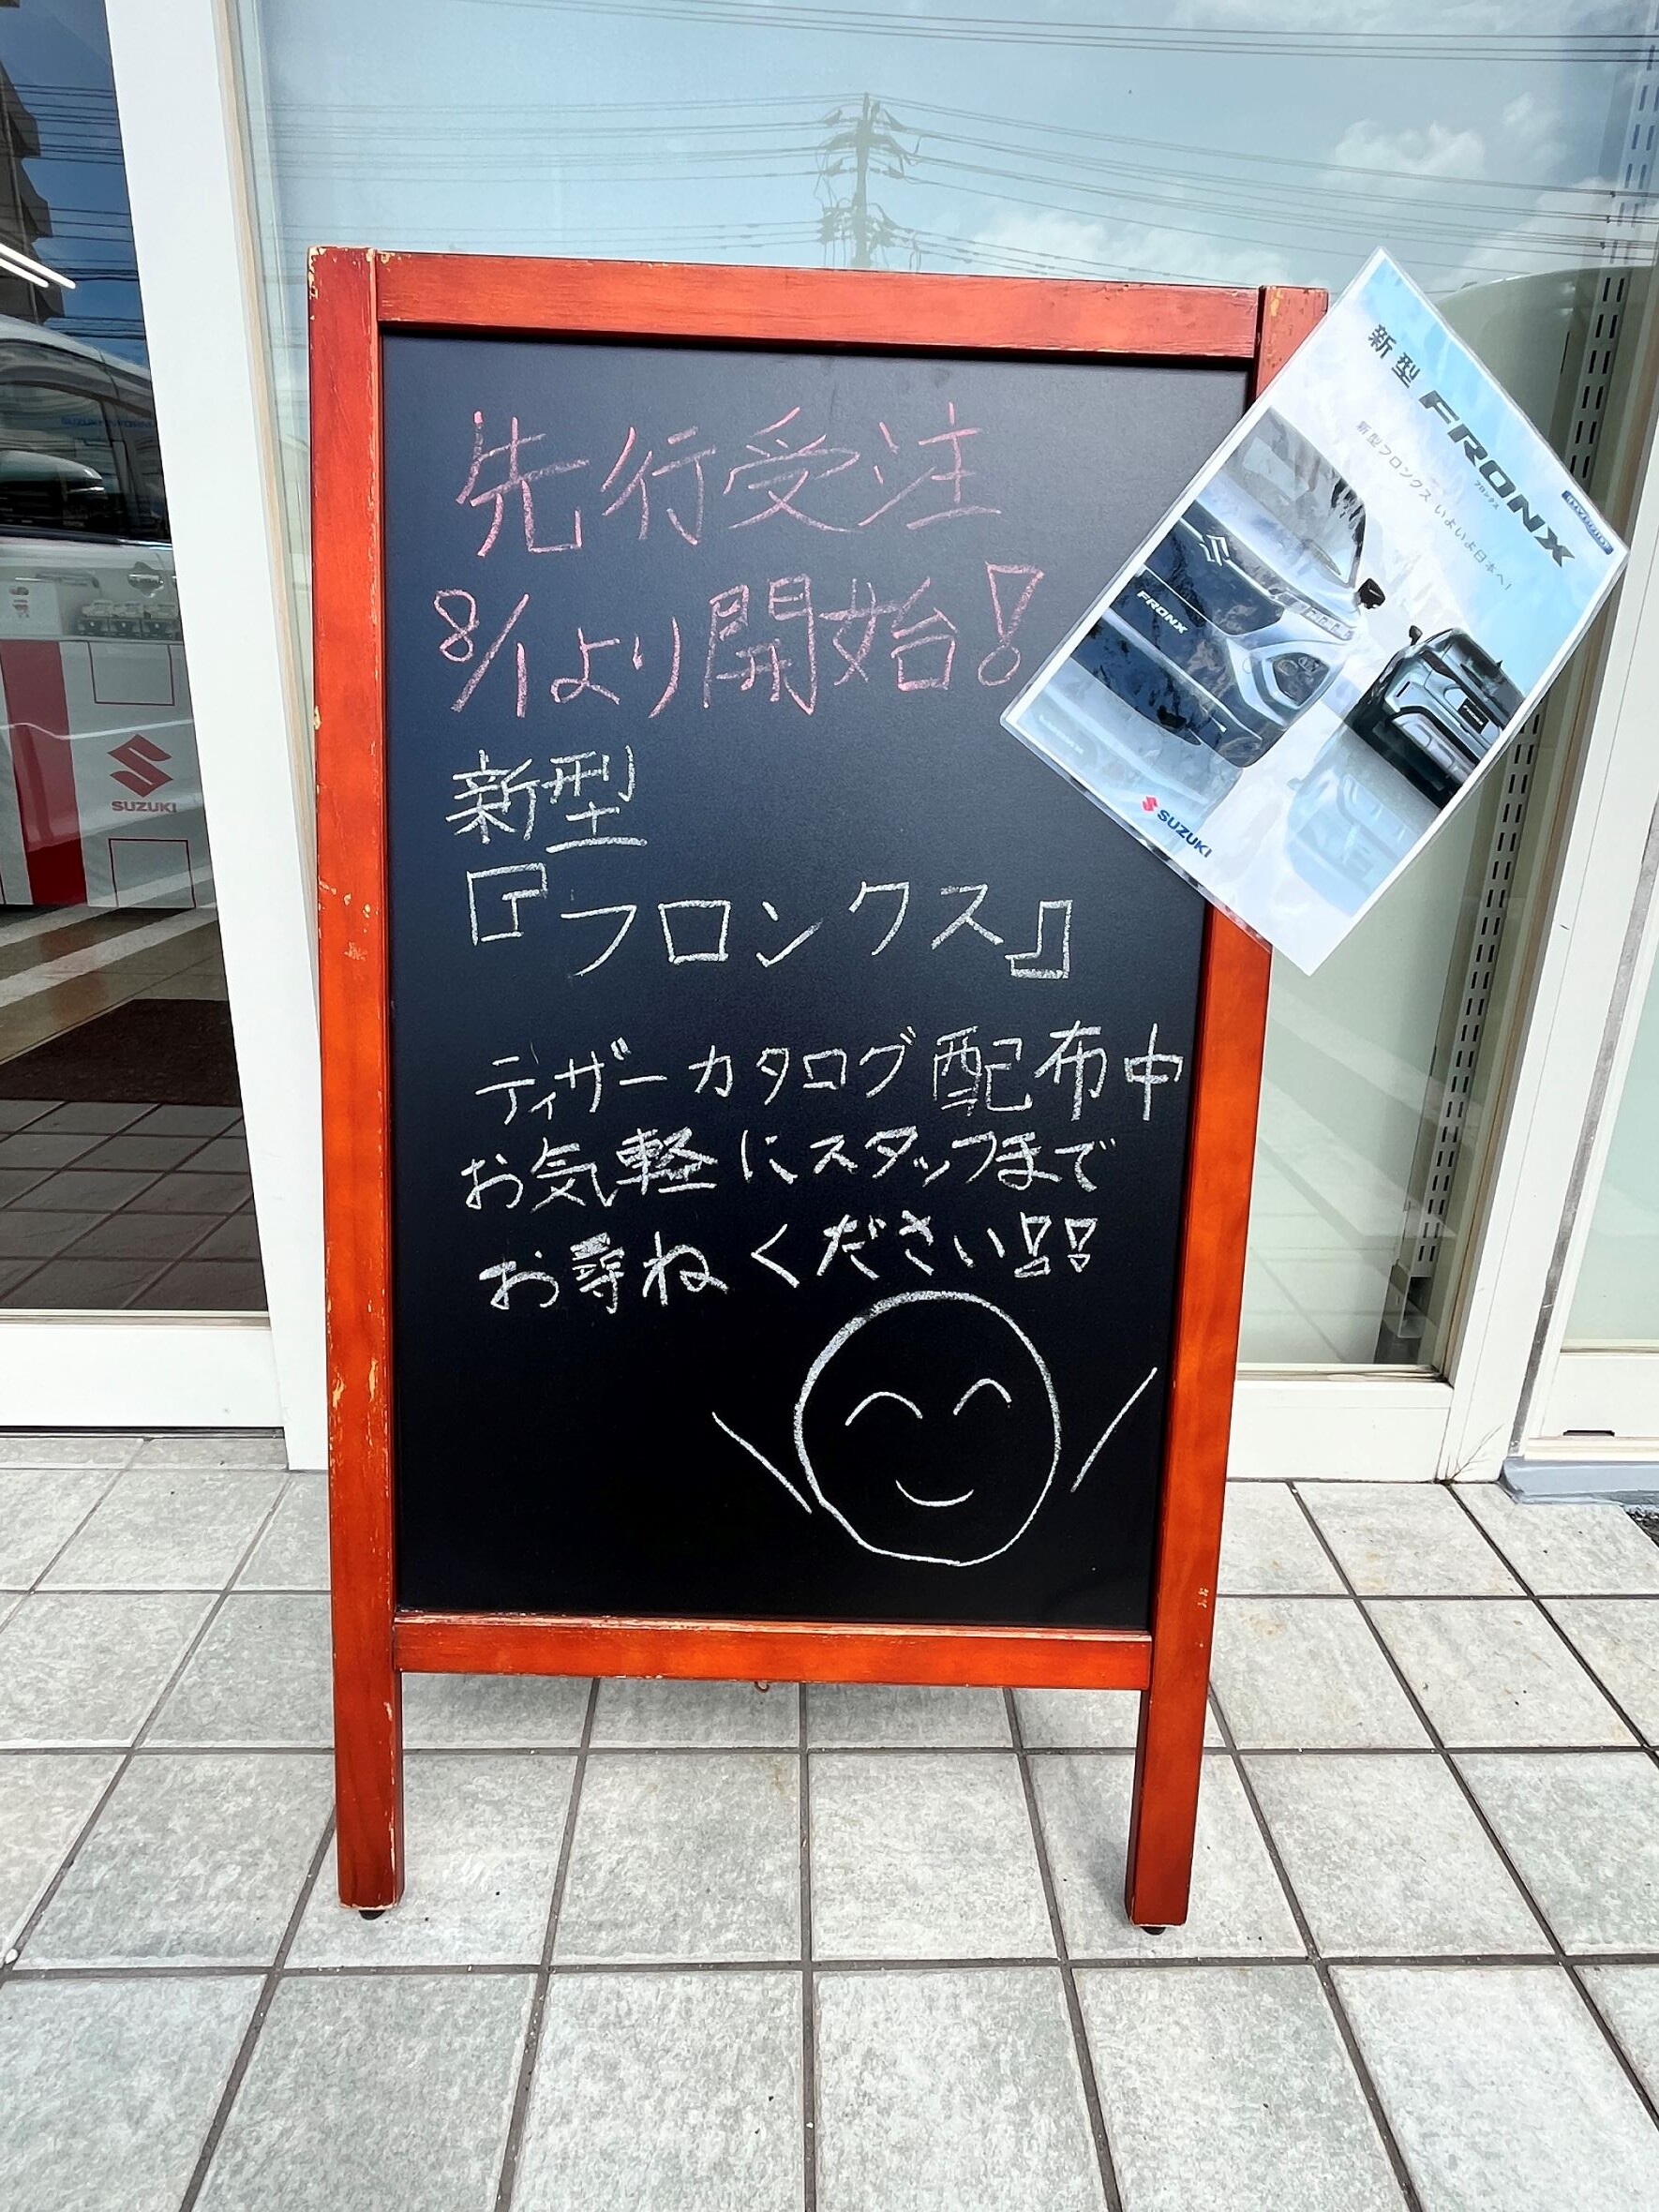 先行受注
8/1より開始!
新型
『フロンクス』
ティザーカタログ配布中
お気軽にスタッフまで
お尋ねください!!
新型 FRONX
フロンクス
新型フロンクス いよいよ日本へ!
FRONX
SUZUKI
SUZUKI